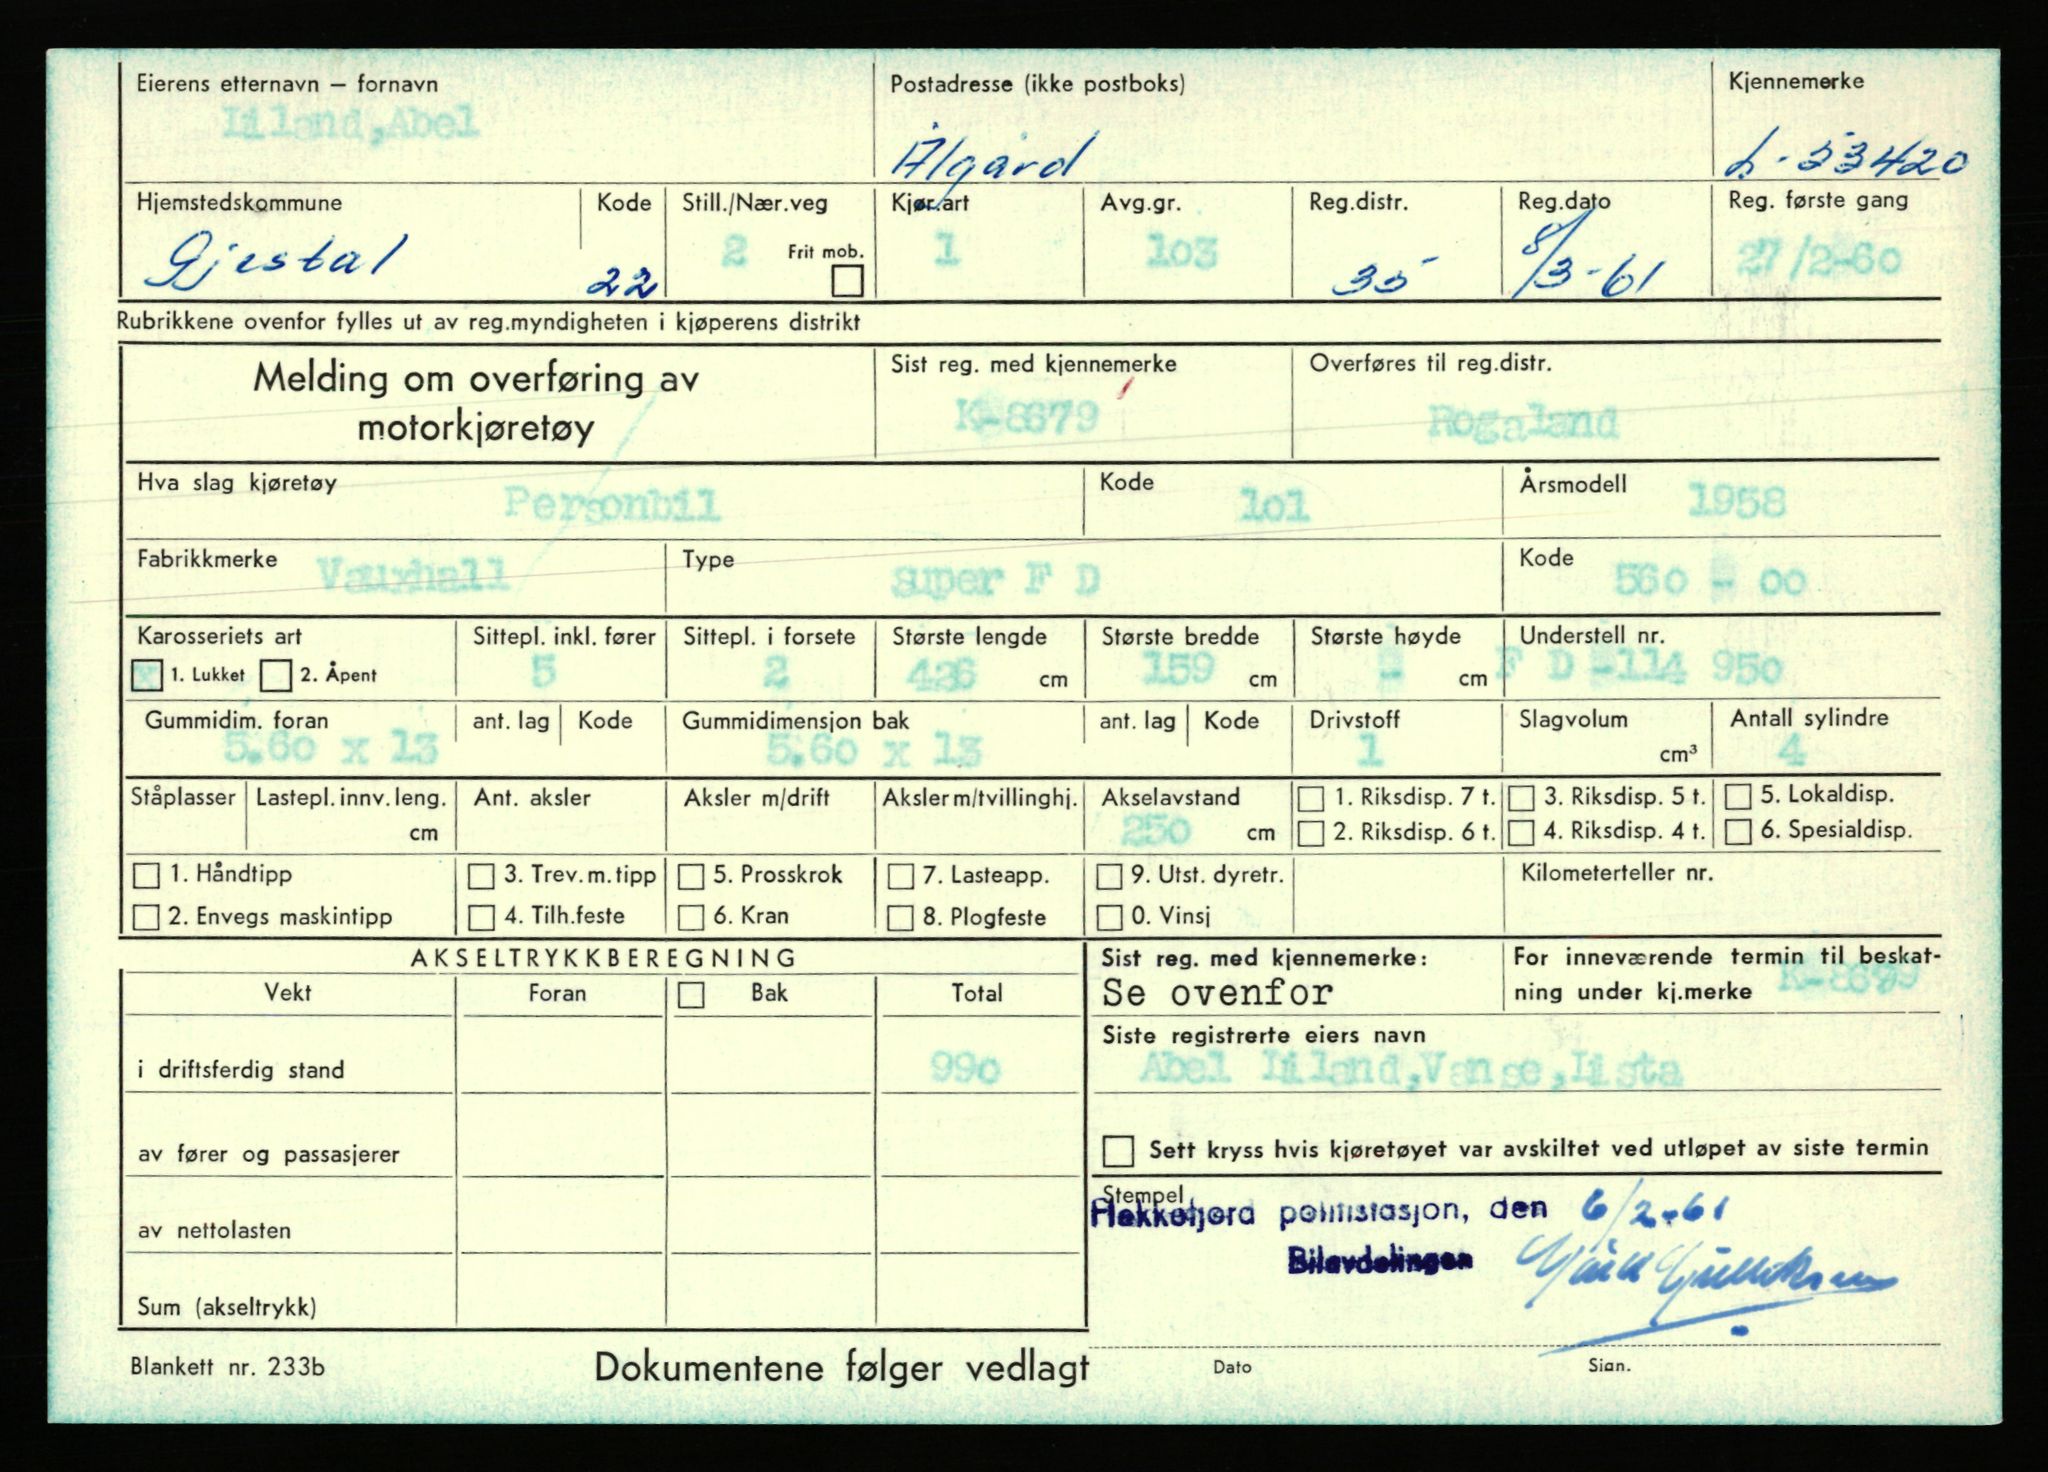 Eierens etternavn – fornavn Postadresse (ikke postboks) Kjennemerke
Liland, Abel Ålgård L-53420
Hjemstedskommune Kode Still./Nær.veg Kjør.art Avg.gr. Reg.distr. Reg.dato Reg. første gang
Gjestal 22 2 Frit mob. 1 103 35 8/3-61 27/2-60
Rubrikkene ovenfor fylles ut av reg.myndigheten i kjøperens distrikt
Melding om overføring av motorkjøretøy
Sist reg. med kjennemerke Overføres til reg.distr.
K-8679 Rogaland
Hva slag kjøretøy Personbil Kode 101 Årsmodell 1958
Fabrikkmerke Vauxhall Type super F D Kode 560 - 00
Karosseriets art Sittepl. inkl. fører Sittepl. i forsete Største lengde Største bredde Største høyde Understell nr.
x 1. Lukket 2. Åpent 5 2 426 cm 159 cm - cm F D -114 950
Gummidim. foran ant. lag Kode Gummidimensjon bak ant. lag Kode Drivstoff Slagvolum Antall sylindre
5.60 x 13 5.60 x 13 1 cm³ 4
Ståplasser Lastepl. innv. leng. Ant. aksler Aksler m/drift Aksler m/tvillinghj. Akselavstand 1. Riksdisp. 7 t. 3. Riksdisp. 5 t. 5. Lokaldisp.
cm 250 cm 2. Riksdisp. 6 t. 4. Riksdisp. 4 t. 6. Spesialdisp.
1. Håndtipp 3. Trev.m.tipp 5. Prosskrok 7. Lasteapp. 9. Utst. dyretr. Kilometerteller nr.
2. Envegs maskintipp 4. Tilh.feste 6. Kran 8. Plogfeste 0. Vinsj
AKSELTRYKKBEREGNING
Vekt Foran Bak Total
i driftsferdig stand 990
av fører og passasjerer
av nettolasten
Sum (akseltrykk)
Sist reg. med kjennemerke: Se ovenfor
For inneværende termin til beskat-
ning under kj.merke K-8679
Siste registrerte eiers navn
Abel Liland, Vanse, Lista
Sett kryss hvis kjøretøyet var avskiltet ved utløpet av siste termin
Stempel
Flekkefjord politistasjon, den 6/2-61
Bilavdelingen
Dato Sign.
Blankett nr. 233b Dokumentene følger vedlagt